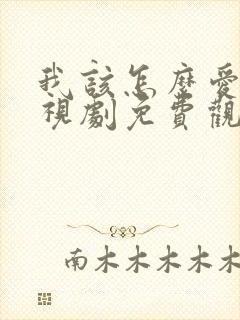 我該怎麼愛
視劇免費觀
南木木木木木